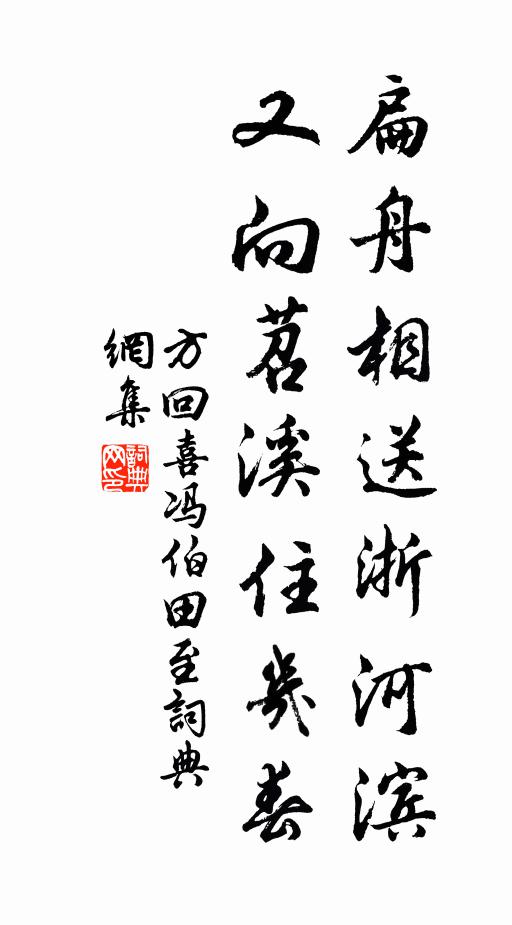 扁舟相送浙河滨
又向苕溪住幾春
方回喜冯伯田至詞典
網集
詞典
网印